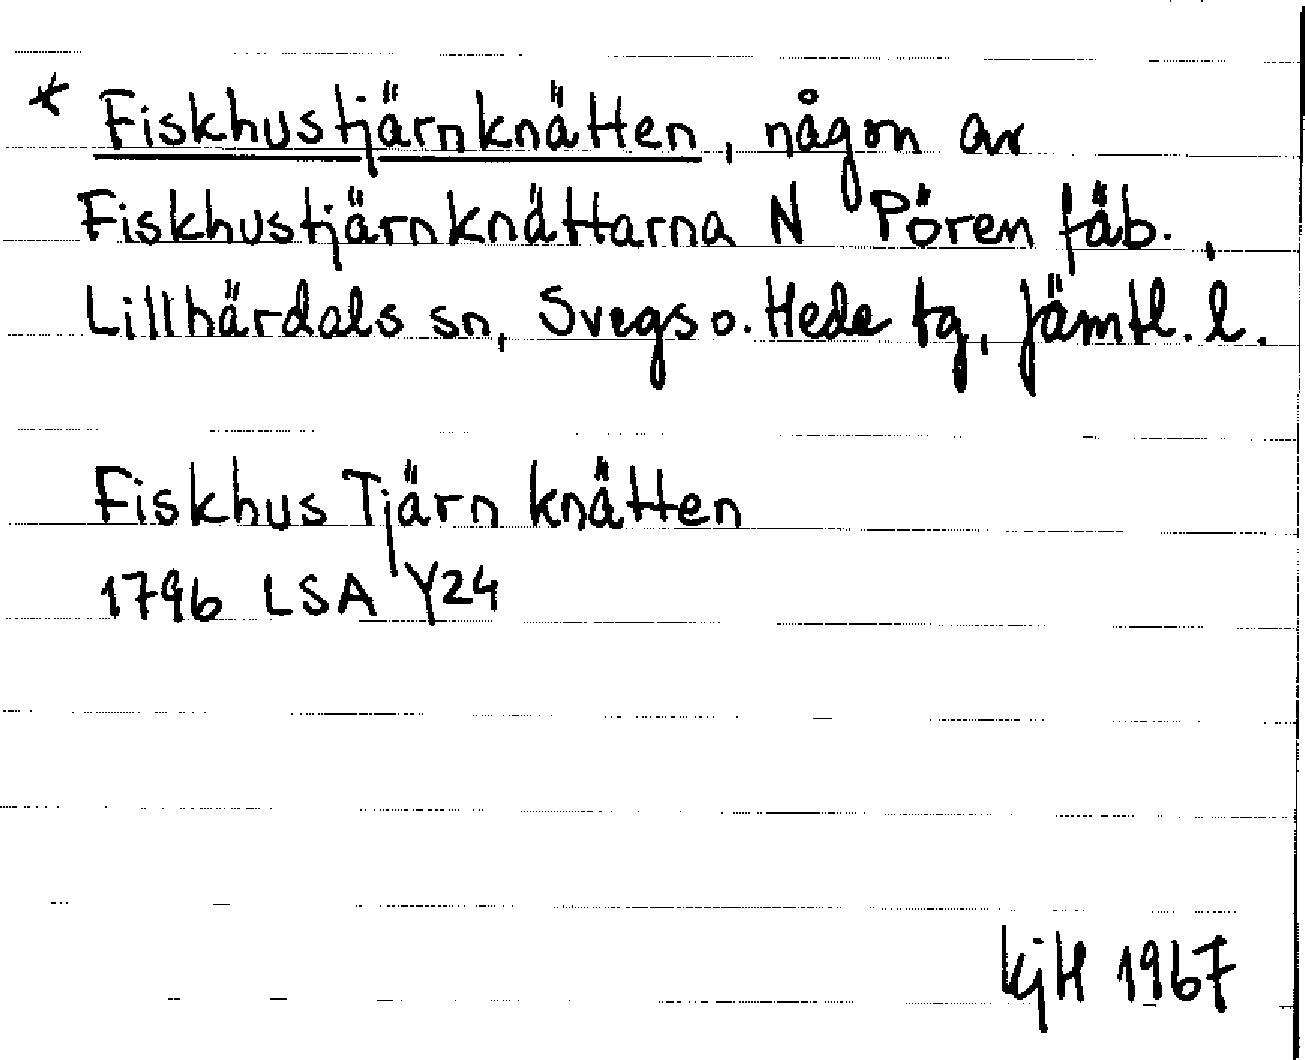 * Fiskhustjärnknätten, någon av
Fiskhustjärnknättarna N Pören fäb.,
Lillhärdals sn, Svegs o. Hede tg, Jämtl. l.
Fiskhus Tjärn knätten
1796 LSA Y24
KjH 1967